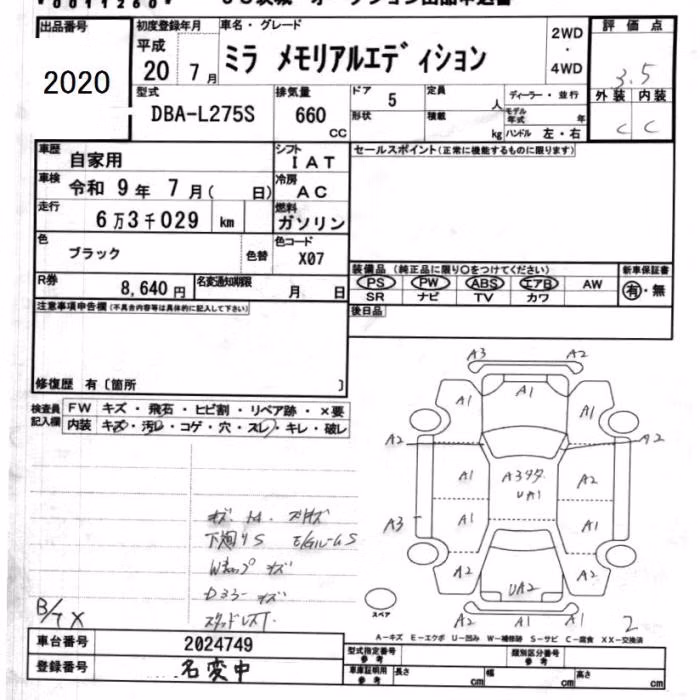 出品番号 2020
初度登録年月 平成 20 7月
車名・グレード ミラ メモリアルエディション
2WD ・ 4WD
評価点 3.5
外装 内装
C C
型式 DBA-L275S
排気量 660 CC
ドア 5
形状
定員 人
積載 kg
ディーラー・並行
モデル年式 年
ハンドル 左・右
車歴 自家用
シフト IAT
車検 令和 9年 7月( 日)
冷房 AC
走行 6万3千029 km
燃料 ガソリン
色 ブラック 色替
色コード X07
R券 8,640円
名変通知期限 月 日
セールスポイント(正常に機能するものに限ります)
装備品 (純正品に限り○をつけてください)
新車保証書
PS PW ABS エアB AW
有・無
SR ナビ TV カワ
後日品
注意事項申告欄(不具合内容等は具体的に記入して下さい)
修復歴 有〔箇所 〕
検査員記入欄
FW キズ・飛石・ヒビ割・リペア跡・×要
内装 キズ・汚レ・コゲ・穴・スレ・キレ・破レ
A3 A2
A1
A1 A1
A2 A2
A1 A2
UA1
A3 A1 A1
A2 A2
UA2
A1 A2
スペア
2
A-キズ E-エクボ U-凹み W-補修跡 S-サビ C-腐食 XX-交換済
車台番号 2024749
登録番号 名変中
型式指定番号 参考
類別区分番号 参考
車庫証明用 参考 長さ cm 幅 cm 高さ cm